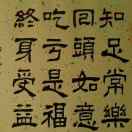 知足常樂
回頭如意
吃亏是福
終身受益